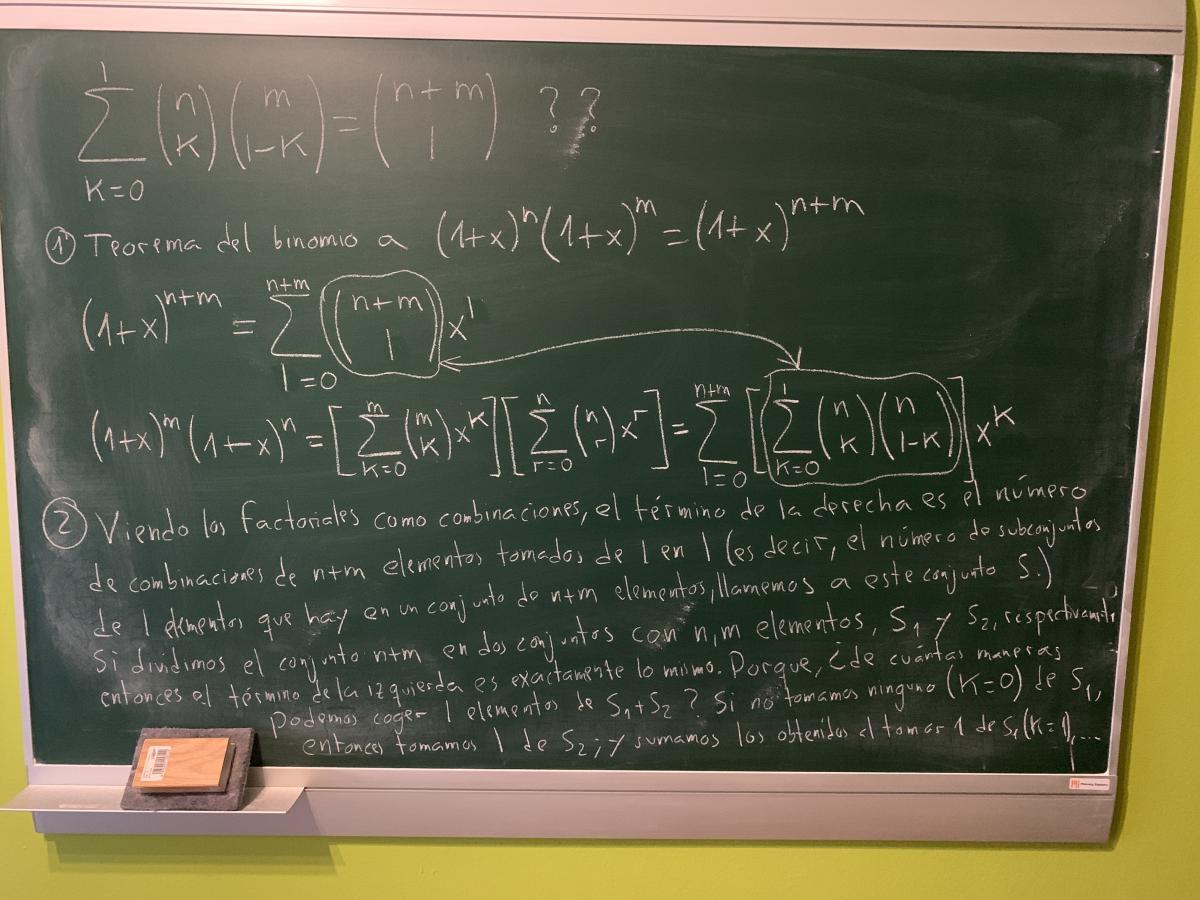 l
∑ (n K) (m l-K) = (n+m l) ??
K=0
① Teorema del binomio a (1+x)^n (1+x)^m = (1+x)^{n+m}
(1+x)^{n+m} = ∑_{l=0}^{n+m} (n+m l) x^l
(1+x)^m (1+x)^n = [∑_{K=0}^{m} (m K) x^K] [∑_{r=0}^{n} (n r) x^r] = ∑_{l=0}^{n+m} [∑_{K=0}^{l} (n K) (n l-K)] x^K
② Viendo los factoriales como combinaciones, el término de la derecha es el número
de combinaciones de n+m elementos tomados de l en l (es decir, el número de subconjuntos
de l elementos que hay en un conjunto de n+m elementos, llamemos a este conjunto S.)
Si dividimos el conjunto n+m en dos conjuntos con n,m elementos, S1 y S2, respectivamente
entonces el término de la izquierda es exactamente lo mismo. Porque, ¿de cuántas maneras
Podemos coger l elementos de S1+S2? Si no tomamos ninguno (K=0) de S1,
entonces tomamos l de S2; y sumamos los obtenidos al tomar 1 de S1 (K=1),...